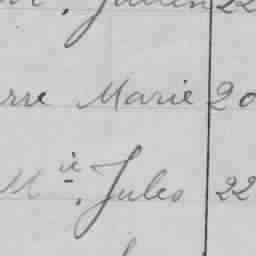 Julien 22
rre Marie 20
Mie. Jules 22